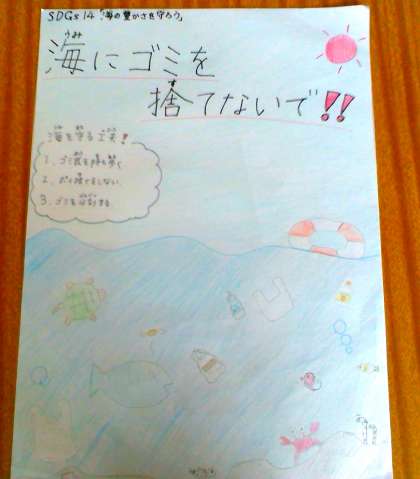 SDGs 14 「海の豊かさを守ろう」
うみ
海にゴミを
す
捨てないで!!
海を守る工夫!
1、ゴミ袋を持ち歩く
2、ポイ捨てをしない。
3、ゴミを分別する。